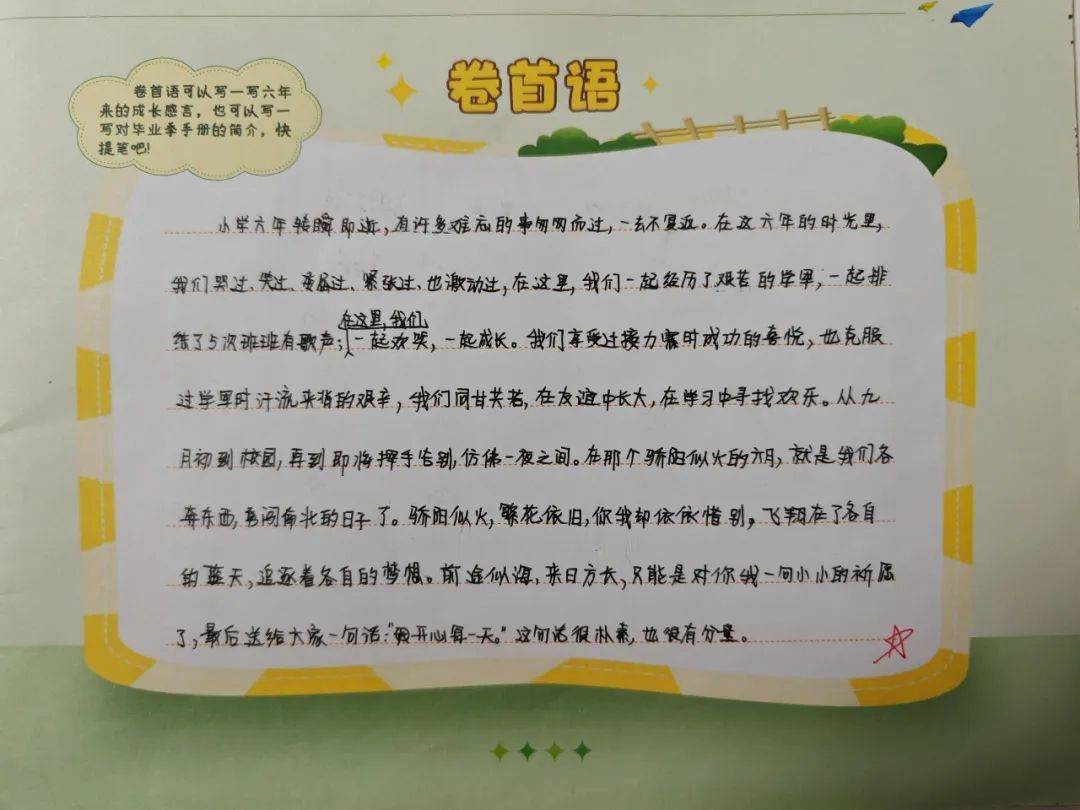 卷首语
卷首语可以写一写六年
来的成长感言，也可以写一
写对毕业季手册的简介，快
提笔吧！
小学六年转瞬即逝，有许多难忘的事匆匆而过，一去不复返。在这六年的时光里，
我们哭过、笑过、委屈过、紧张过、也激动过，在这里，我们一起经历了艰苦的学军，一起排
练了5次班班有歌声；在这里，我们一起欢笑，一起成长。我们享受过接力赛时成功的喜悦，也克服
过学军时汗流夹背的艰辛，我们同甘共苦，在友谊中长大，在学习中寻找欢乐。从九
月初到校园，再到即将挥手告别，仿佛一夜之间。在那个骄阳似火的六月，就是我们各
奔东西，勇闯南北的日子了。骄阳似火，繁花依旧，你我却依依惜别。飞翔在了各自
的蓝天，追逐着各自的梦想。前途似海，来日方长，只能是对你我一句小小的祈愿
了，最后送给大家一句话：“要开心每一天。”这句话很朴素，也很有分量。